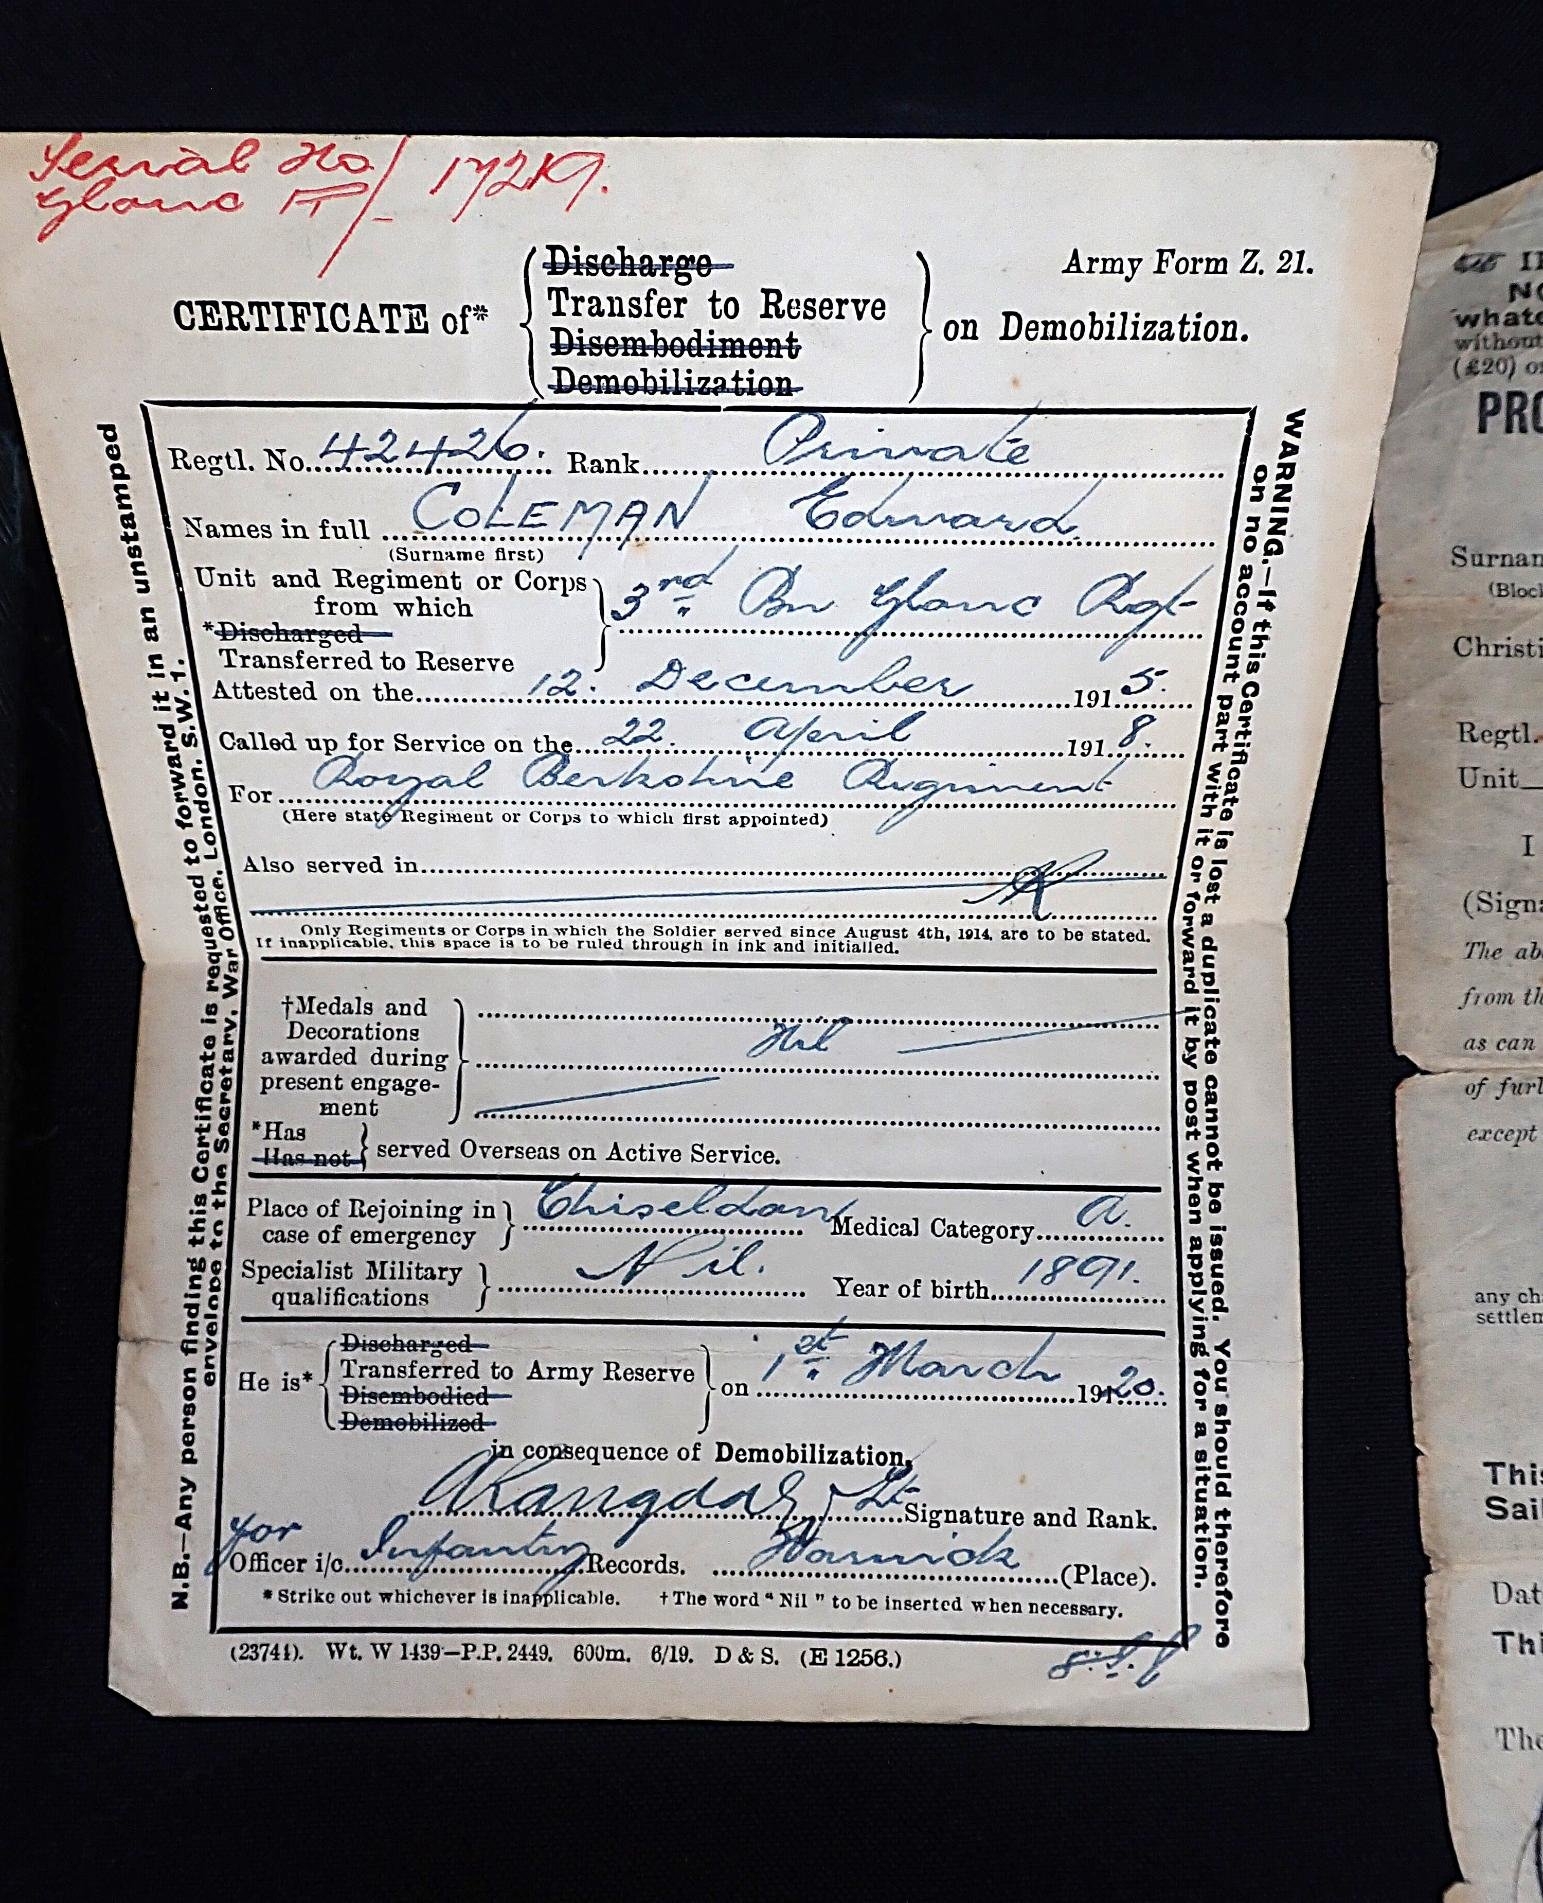 Serial No
Glouc 17219.
Army Form Z. 21.
CERTIFICATE of*
Discharge
Transfer to Reserve
Disembodiment
Demobilization
on Demobilization.
Regtl. No. 42426. Rank Private
Names in full COLEMAN Edward.
(Surname first)
Unit and Regiment or Corps
from which
*Discharged
Transferred to Reserve
3rd Bn Glouc Regt
Attested on the 12. December 1915.
Called up for Service on the 22. April 1918.
For Royal Berkshire Regiment
(Here state Regiment or Corps to which first appointed)
Also served in
Only Regiments or Corps in which the Soldier served since August 4th, 1914, are to be stated.
If inapplicable, this space is to be ruled through in ink and initialled.
†Medals and
Decorations
awarded during
present engage-
ment
Nil
*Has
Has not
served Overseas on Active Service.
Place of Rejoining in
case of emergency
Chiseldon Medical Category A.
Specialist Military
qualifications
Nil. Year of birth 1891.
He is*
Discharged
Transferred to Army Reserve
Disembodied
Demobilized
on 1st March 1920.
in consequence of Demobilization,
Lt Signature and Rank.
for
Officer i/c. Infantry Records. Warwick (Place).
* Strike out whichever is inapplicable. † The word "Nil" to be inserted when necessary.
(23741). Wt. W 1439—P.P. 2449. 600m. 6/19. D & S. (E 1256.)
N.B.—Any person finding this Certificate is requested to forward it in an unstamped
envelope to the Secretary, War Office, London. S.W. 1.
WARNING.—If this Certificate is lost a duplicate cannot be issued. You should therefore
on no account part with it or forward it by post when applying for a situation.
NO
without
(£20)
PRO
Surnam
(Block
Christi
Regtl.
Unit
I
(Signa
The ab
from th
as can
of furl
except
any ch
settlem
This
Sail
Dat
Thi
The